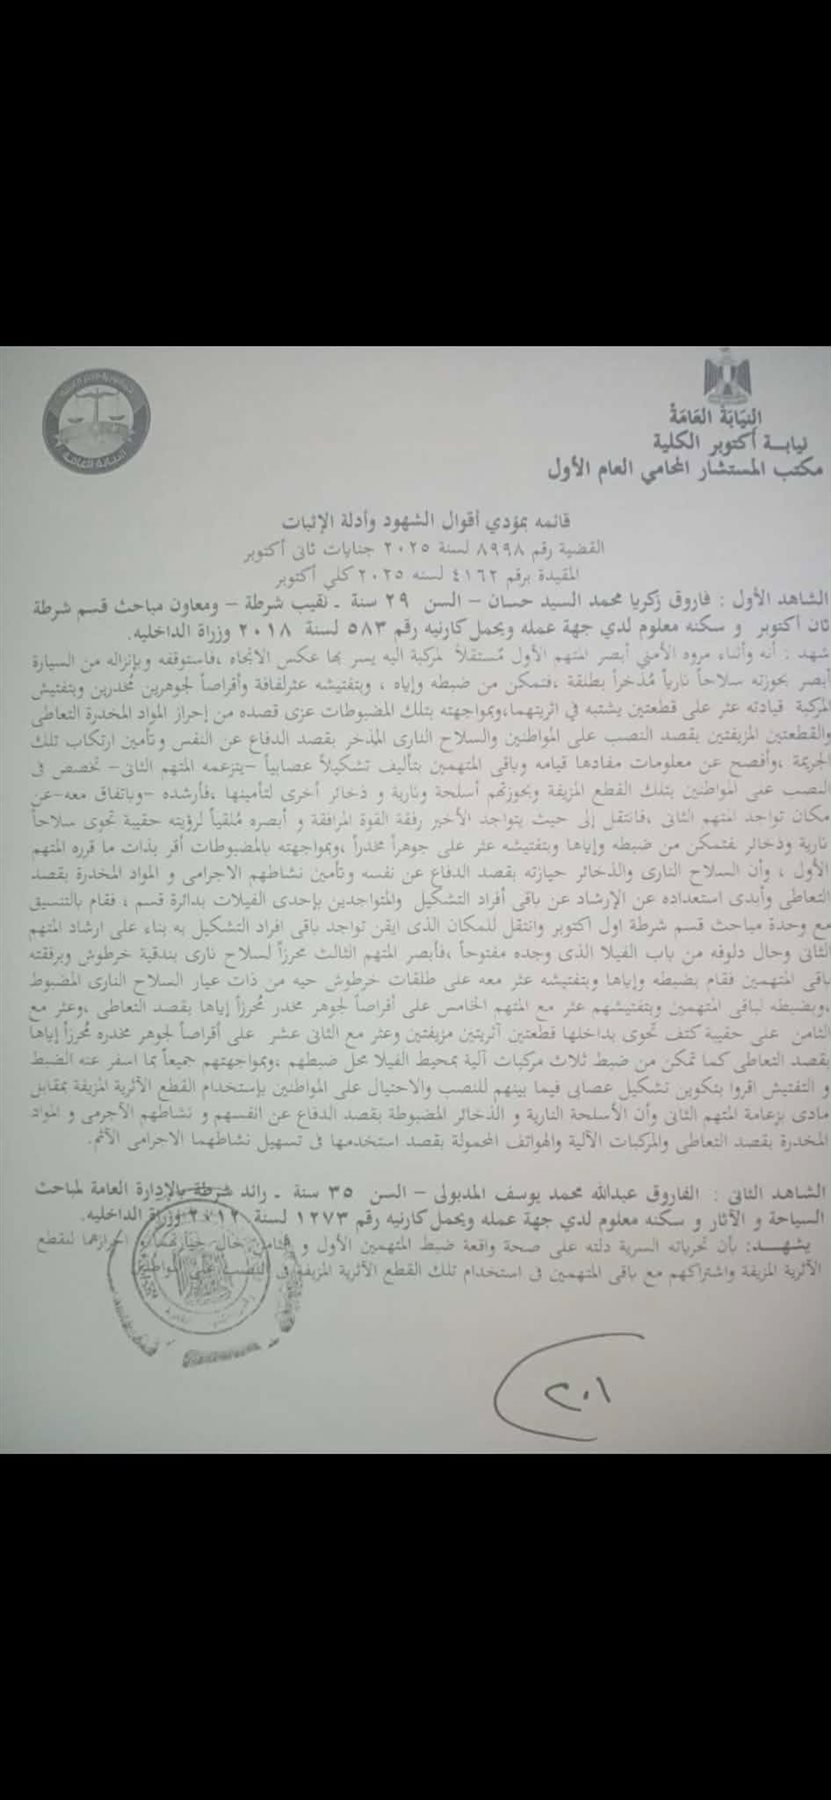 النيابة العامة
نيابة أكتوبر الكلية
مكتب المستشار المحامي العام الأول
قائمه بمؤدي أقوال الشهود وأدلة الإثبات
القضية رقم ٨٩٩٨ لسنة ٢٠٢٥ جنايات ثاني أكتوبر
المقيدة برقم ٤١٦٢ لسنه ٢٠٢٥ كلي أكتوبر
الشاهد الأول : فاروق زكريا محمد السيد حسان – السن ٢٩ سنة ـ نقيب شرطة – ومعاون مباحث قسم شرطة
ثان أكتوبر و سكنه معلوم لدي جهة عمله ويحمل كارنيه رقم ٥٨٣ لسنة ٢٠١٨ وزراة الداخليه.
شهد : أنه وأثناء مروه الأمني أبصر المتهم الأول مُستقلاً لمركبة اليه يسر بها عكس الاتجاه ،فاستوقفه وبإنزاله من السيارة
أبصر بحوزته سلاحاً نارياً مُذخراً بطلقة ،فتمكن من ضبطه وإياه ، وبتفتيشه عثرلفافة وأقراصاً لجوهرين مُخدرين وبتفتيش
المركبة قيادته عثر على قطعتين يشتبه في اثريتهما،وبمواجهته بتلك المضبوطات عزى قصده من إحراز المواد المخدرة التعاطى
والقطعتين المزيفتين بقصد النصب على المواطنين والسلاح النارى المذخر بقصد الدفاع عن النفس وتأمين ارتكاب تلك
الجريمة ،وأفصح عن معلومات مفادها قيامه وباقى المتهمين بتأليف تشكيلاً عصابياً –يتزعمه المتهم الثانى– تخصص فى
النصب على المواطنين بتلك القطع المزيفة وبحوزتهم أسلحة ونارية و ذخائر أخرى لتأمينها ،فأرشده –وباتفاق معه–عن
مكان تواجد المتهم الثانى ،فانتقل إلى حيث يتواجد الأخير رفقة القوة المرافقة و أبصره مُلقياً لرؤيته حقيبة تحوى سلاحاً
نارية وذخائر فتمكن من ضبطه وإياها وبتفتيشه عثر على جوهراً مخدراً ،وبمواجهته بالمضبوطات أقر بذات ما قرره المتهم
الأول ، وأن السلاح النارى والذخائر حيازته بقصد الدفاع عن نفسه وتأمين نشاطهم الاجرامى و المواد المخدرة بقصد
التعاطى وأبدى استعداده عن الإرشاد عن باقى أفراد التشكيل والمتواجدين بإحدى الفيلات بدائرة قسم ، فقام بالتنسيق
مع وحدة مباحث قسم شرطة اول اكتوبر وانتقل للمكان الذى ايقن تواجد باقى افراد التشكيل به بناء على ارشاد المتهم
الثانى وحال دلوفه من باب الفيلا الذى وجده مفتوحاً ،فأبصر المتهم الثالث محرزاً لسلاح نارى بندقية خرطوش وبرفقته
باقى المتهمين فقام بضبطه وإياها وبتفتيشه عثر معه على طلقات خرطوش حيه من ذات عيار السلاح النارى المضبوط
،وبضبطه لباقى المتهمين وبتفتيشهم عثر مع المتهم الخامس على أقراصاً لجوهر مخدر مُحرزاً إياها بقصد التعاطى ،وعثر مع
الثامن على حقيبة كتف تحوى بداخلها قطعتين أثريتين مزيفتين وعثر مع الثانى عشر على أقراصاً لجوهر مخدره مُحرزاً إياها
بقصد التعاطى كما تمكن من ضبط ثلاث مركبات آلية بمحيط الفيلا محل ضبطهم ،وبمواجهتهم جميعاً بما اسفر عنه الضبط
و التفتيش اقروا بتكوين تشكيل عصابى فيما بينهم للنصب والاحتيال على المواطنين بإستخدام القطع الأثرية المزيفة بمقابل
مادى بزعامة المتهم الثانى وأن الأسلحة النارية و الذخائر المضبوطة بقصد الدفاع عن انفسهم و نشاطهم الأجرمى و المواد
المخدرة بقصد التعاطى والمركبات الآلية والهواتف المحمولة بقصد استخدمها فى تسهيل نشاطهما الاجرامى الآثم.
الشاهد الثانى : الفاروق عبدالله محمد يوسف المدبولى – السن ٣٥ سنة ـ رائد شرطة بالإدارة العامة لمباحث
السياحة و الآثار و سكنه معلوم لدي جهة عمله ويحمل كارنيه رقم ١٢٧٣ لسنة ٢٠١٢ وزراة الداخليه.
يشهـد: بأن تحرياته السرية دلته على صحة واقعة ضبط المتهمين الأول و الثامن حال احرازهما لقطع
الآثرية المزيفة واشتراكهم مع باقى المتهمين فى استخدام تلك القطع الأثرية المزيفة فى النصب على المواطنين
٢٠١
النيابة العامة